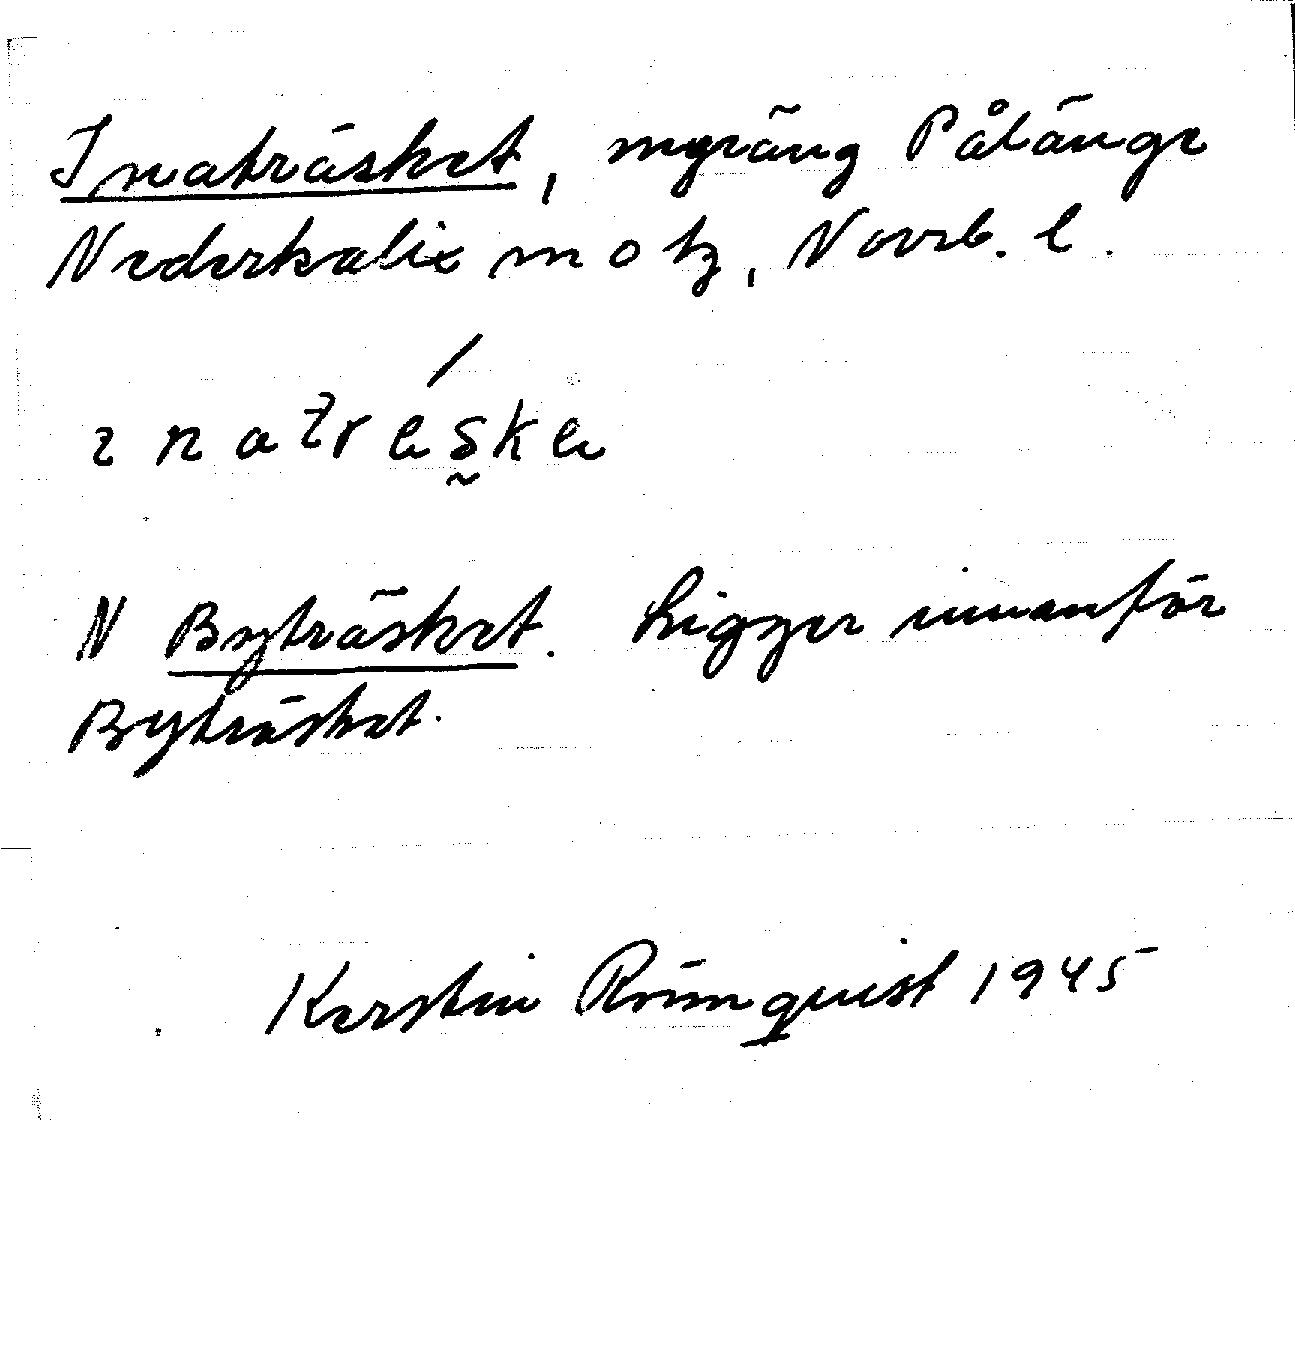 Inaträsket, myräng Pålänge
Nederkalix sn o tg, Norrb. l.
ɩnatrǽske
N Byträsket. Ligger innanför
Byträsket.
Kerstin Rönnquist 1945